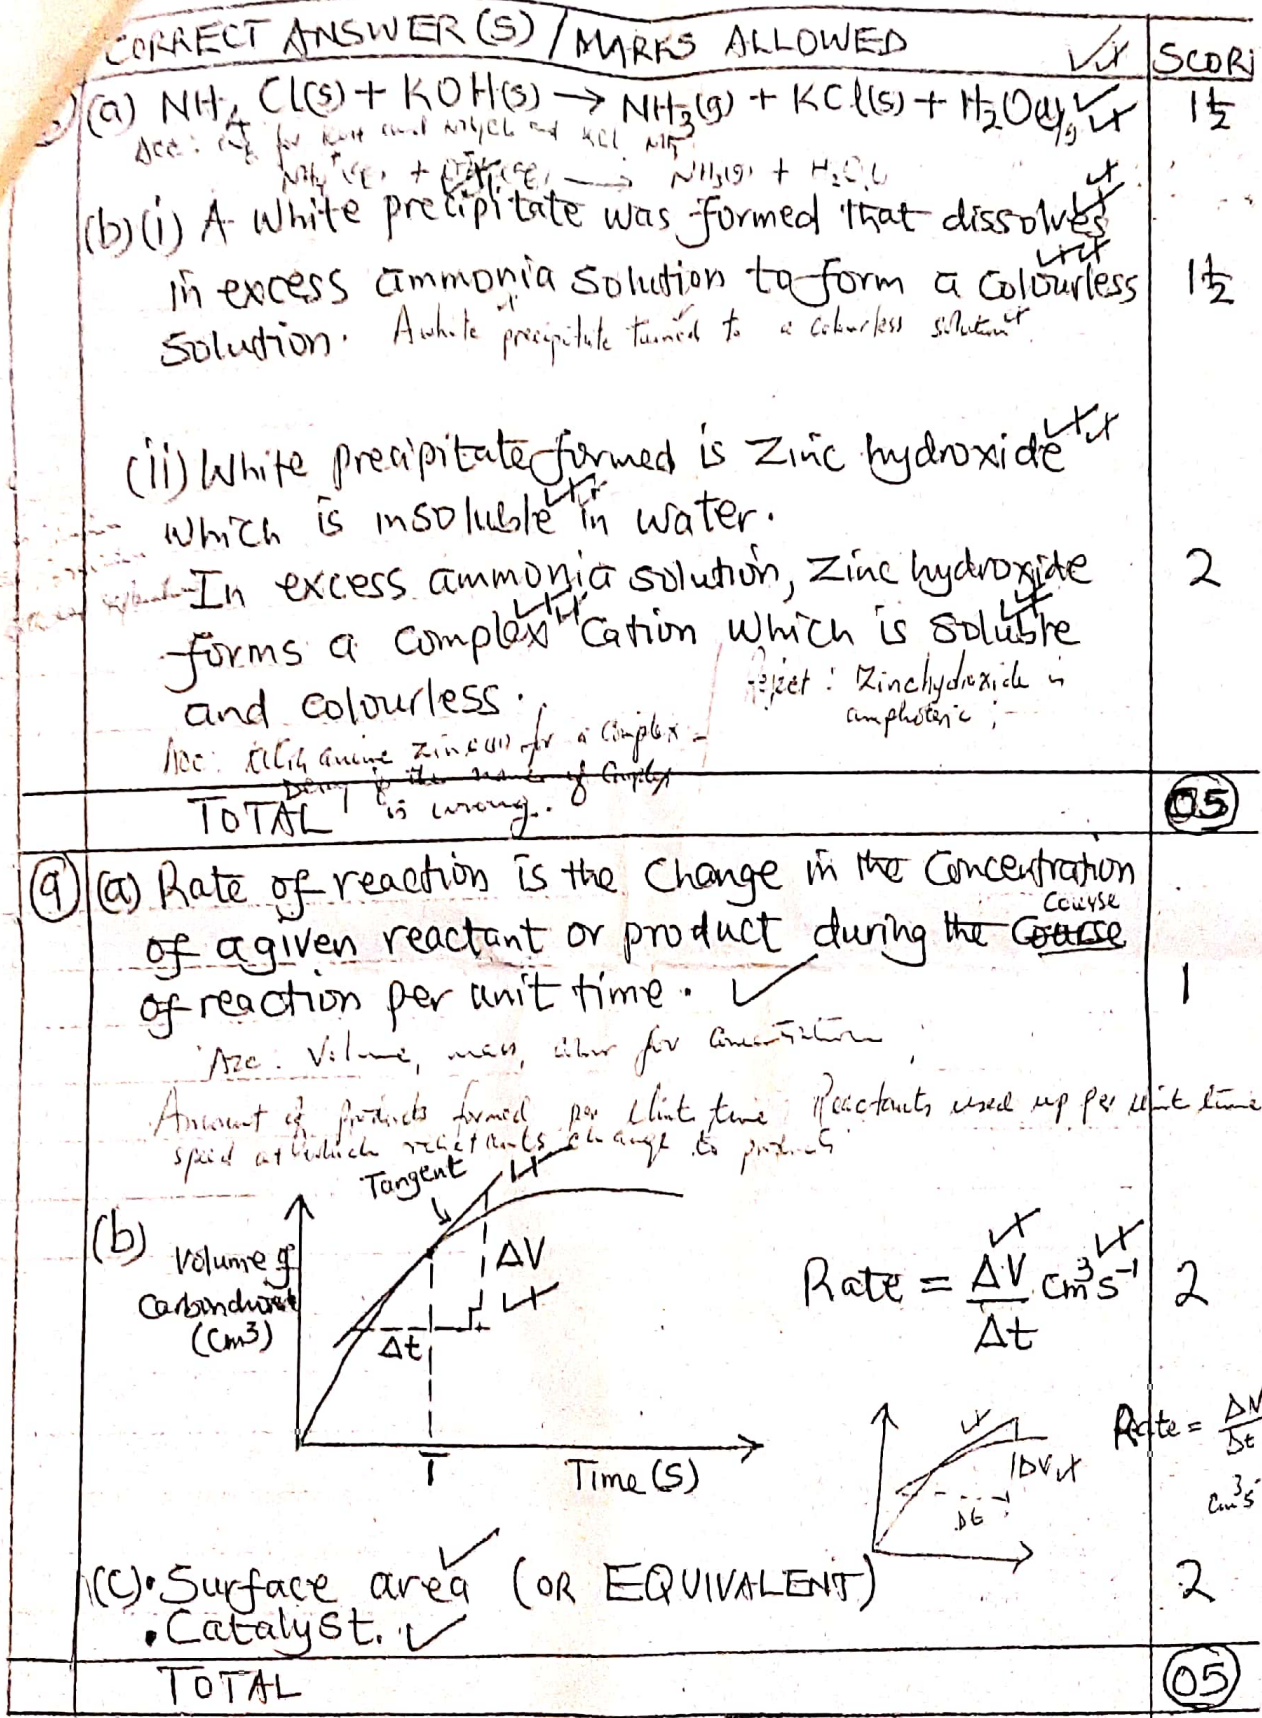 CORRECT ANSWER(S) / MARKS ALLOWED
SCOR
(a) NH4Cl(s) + KOH(s) → NH3(g) + KCl(s) + H2O(l/g)
1½
Acc: for KOH and NH4Cl and KCl
NH4+ + → NH3(g) + H2O
(b)(i) A White precipitate was formed that dissolves
in excess ammonia solution to form a colourless
1½
solution. A white precipitate turned to a colourless solution
(ii) White precipitate formed is Zinc hydroxide
which is insoluble in water.
In excess ammonia solution, Zinc hydroxide
2
forms a complex cation which is soluble
and colourless.
Reject: Zinc hydroxide is
amphoteric;
Acc: for a complex
name of complex
is wrong.
TOTAL
05
9 (a) Rate of reaction is the Change in the Concentration
of a given reactant or product during the Course
Course
of reaction per unit time.
1
Acc: Volume, mass, for concentration
Amount of products formed per Unit time; Reactants used up per unit time
speed at which reactants change to products
(b)
Tangent
Volume of
Carbondioxide
(cm3)
ΔV
Δt
T
Time (s)
Rate = ΔV cm³s⁻¹
Δt
2
ΔV
Δt
Rate = ΔV
Δt
cm³s⁻
(c) • Surface area (OR EQUIVALENT)
2
• Catalyst.
TOTAL
05